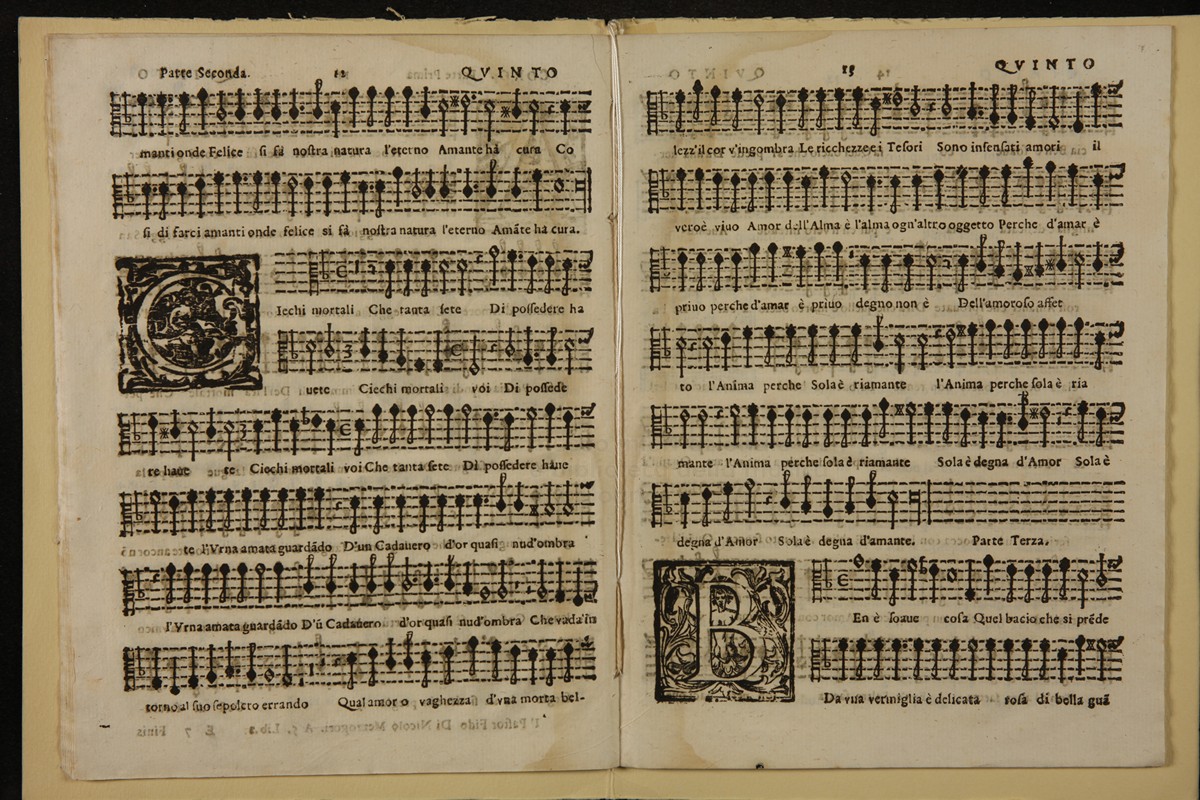 Parte Seconda. 12 QVINTO
manti onde Felice si fà nostra natura l'eterno Amante hà cura Co
si di farci amanti onde felice si fà nostra natura l'eterno Amãte hà cura.
C Iechi mortali Che tanta sete Di possedere ha
uete Ciechi mortali voi Di possede
re haue te Ciechi mortali voi Che tanta sete Di possedere haue
te l'Vrna amata guardãdo D'un Cadauero d'or quasi nud'ombra
l'Vrna amata guardãdo D'ũ Cadauero d'or quasi nud'ombra Che vada ĩn
torno al suo sepolcro errando Qual amor o vaghezza d'vna morta bel-
15 QVINTO
lezz'il cor v'ingombra Le ricchezze e i Tesori Sono insensati amori il
vero è viuo Amor dell'Alma è l'alma ogn'altro oggetto Perche d'amar è
priuo perche d'amar è priuo degno non è Dell'amoroso affet
to l'Anima perche Sola è riamante l'Anima perche sola è ria
mante l'Anima perche sola è riamante Sola è degna d'Amor Sola è
degna d'Amor Sola è degna d'amante. Parte Terza.
B En è soaue cosa Quel bacio che si prẽde
Da vna vermiglia è delicata rosa di bella guã